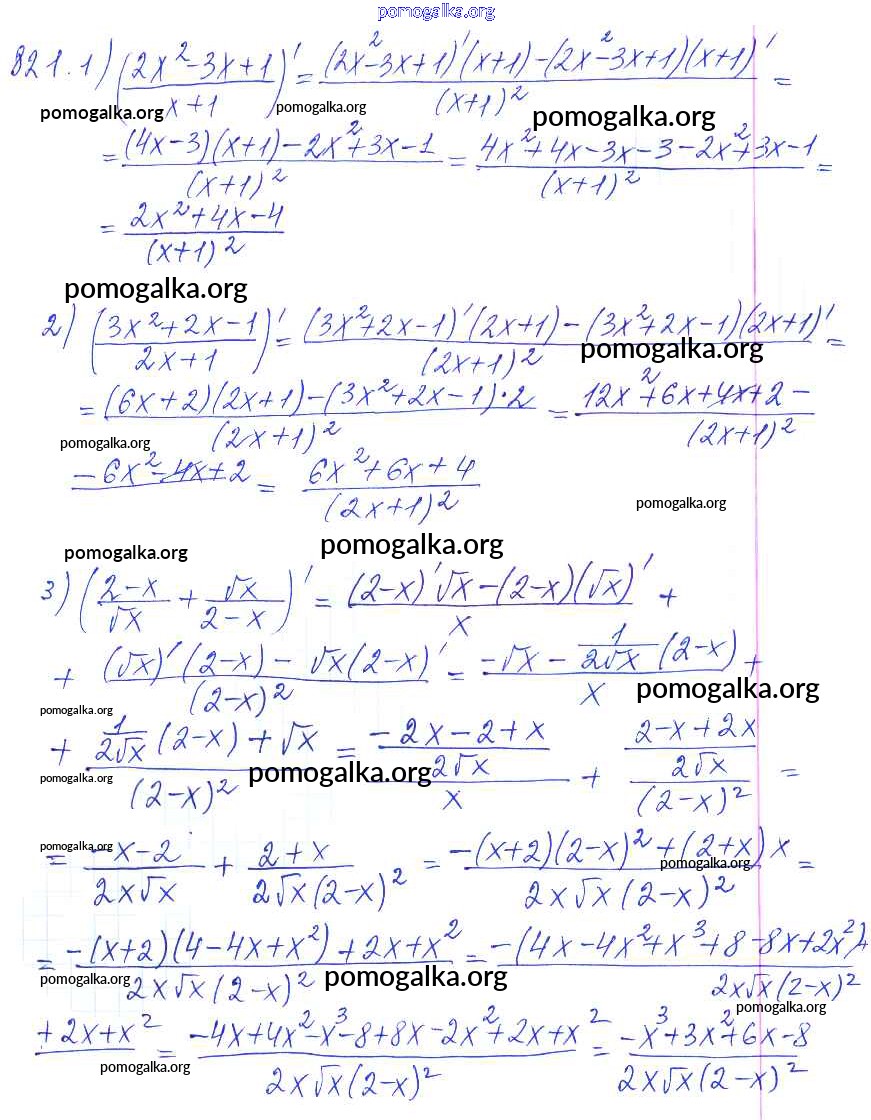 pomogalka.org
821. 1) ((2x²-3x+1)/(x+1))' = ((2x²-3x+1)'(x+1)-(2x²-3x+1)(x+1)')/(x+1)² =
pomogalka.org pomogalka.org pomogalka.org
= ((4x-3)(x+1)-2x²+3x-1)/(x+1)² = (4x²+4x-3x-3-2x²+3x-1)/(x+1)² =
= (2x²+4x-4)/(x+1)²
pomogalka.org
2) ((3x²+2x-1)/(2x+1))' = ((3x²+2x-1)'(2x+1)-(3x²+2x-1)(2x+1)')/(2x+1)² =
pomogalka.org
= ((6x+2)(2x+1)-(3x²+2x-1)·2)/(2x+1)² = (12x²+6x+4x+2-)/(2x+1)²
pomogalka.org
-6x²-4x+2 = (6x²+6x+4)/(2x+1)²
pomogalka.org
pomogalka.org pomogalka.org
3) ((2-x)/√x + √x/(2-x))' = ((2-x)'√x-(2-x)(√x)')/x +
+ ((√x)'(2-x)-√x(2-x)')/(2-x)² = (-√x - 1/(2√x) (2-x))/x +
pomogalka.org pomogalka.org
+ (1/(2√x) (2-x)+√x)/(2-x)² = ((-2x-2+x)/(2√x))/x + ((2-x+2x)/(2√x))/(2-x)² =
pomogalka.org pomogalka.org
= (-x-2)/(2x√x) + (2+x)/(2√x(2-x)²) = (-(x+2)(2-x)²+(2+x)x)/(2x√x(2-x)²) =
pomogalka.org pomogalka.org
= (-(x+2)(4-4x+x²)+2x+x²)/(2x√x(2-x)²) = (-(4x-4x²+x³+8-8x+2x²)+)/(2x√x(2-x)²)
pomogalka.org pomogalka.org pomogalka.org
+2x+x² = (-4x+4x²-x³-8+8x-2x²+2x+x²)/(2x√x(2-x)²) = (-x³+3x²+6x-8)/(2x√x(2-x)²)
pomogalka.org